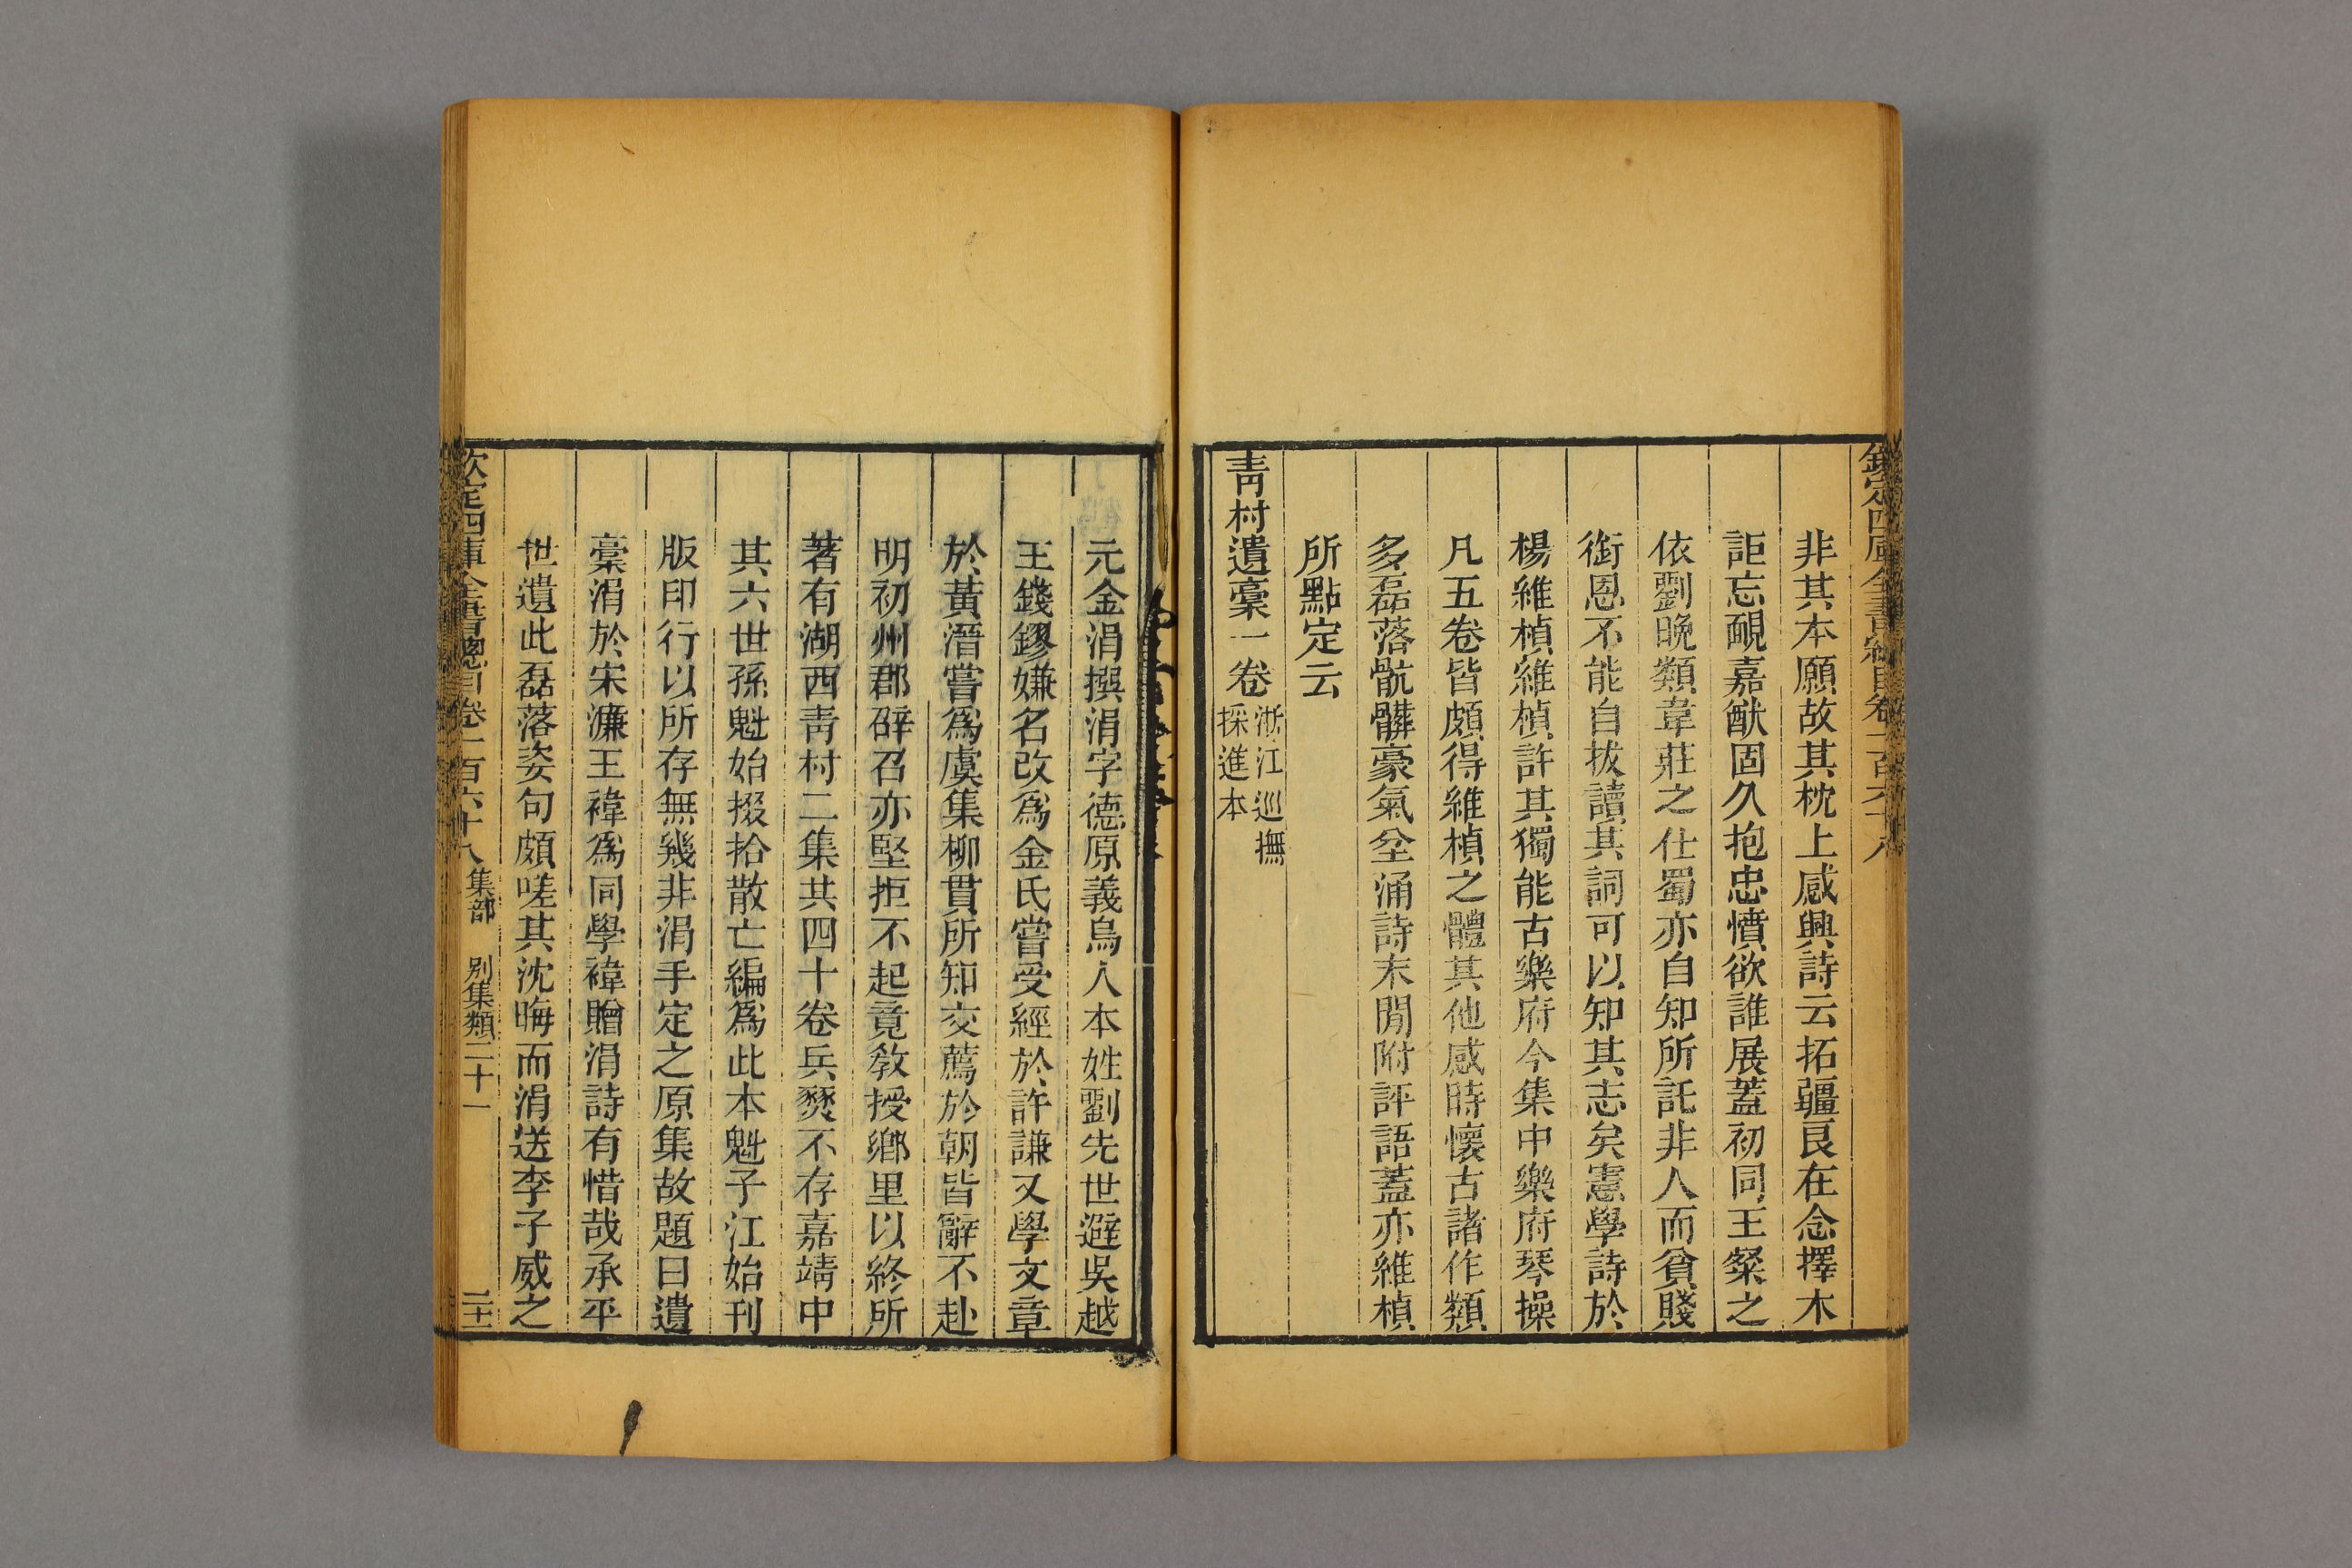 欽定四庫全書總目卷一百六十八
非其本願故其枕上感興詩云拓疆良在念擇木
詎忘覼嘉猷固久抱忠憤欲誰展蓋初同王粲之
依劉晚類韋莊之仕蜀亦自知所託非人而貧賤
銜恩不能自拔讀其詞可以知其志矣憲學詩於
楊維楨維楨許其獨能古樂府今集中樂府琴操
凡五卷皆頗得維楨之體其他感時懷古諸作類
多磊落骯髒豪氣坌涌詩末閒附評語蓋亦維楨
所點定云
靑村遺稾一卷
浙江巡撫
採進本
元金涓撰涓字德原義烏人本姓劉先世避吳越
王錢鏐嫌名改爲金氏嘗受經於許謙又學文章
於黃溍嘗爲虞集柳貫所知交薦於朝皆辭不赴
明初州郡辟召亦堅拒不起竟敎授鄉里以終所
著有湖西靑村二集共四十卷兵燹不存嘉靖中
其六世孫魁始掇拾散亡編爲此本魁子江始刊
版印行以所存無幾非涓手定之原集故題曰遺
稾涓於宋濂王褘爲同學褘贈涓詩有惜哉承平
世遺此磊落姿句頗嗟其沈晦而涓送李子威之
欽定四庫全書總目卷一百六十八 集部 別集類二十一 二十